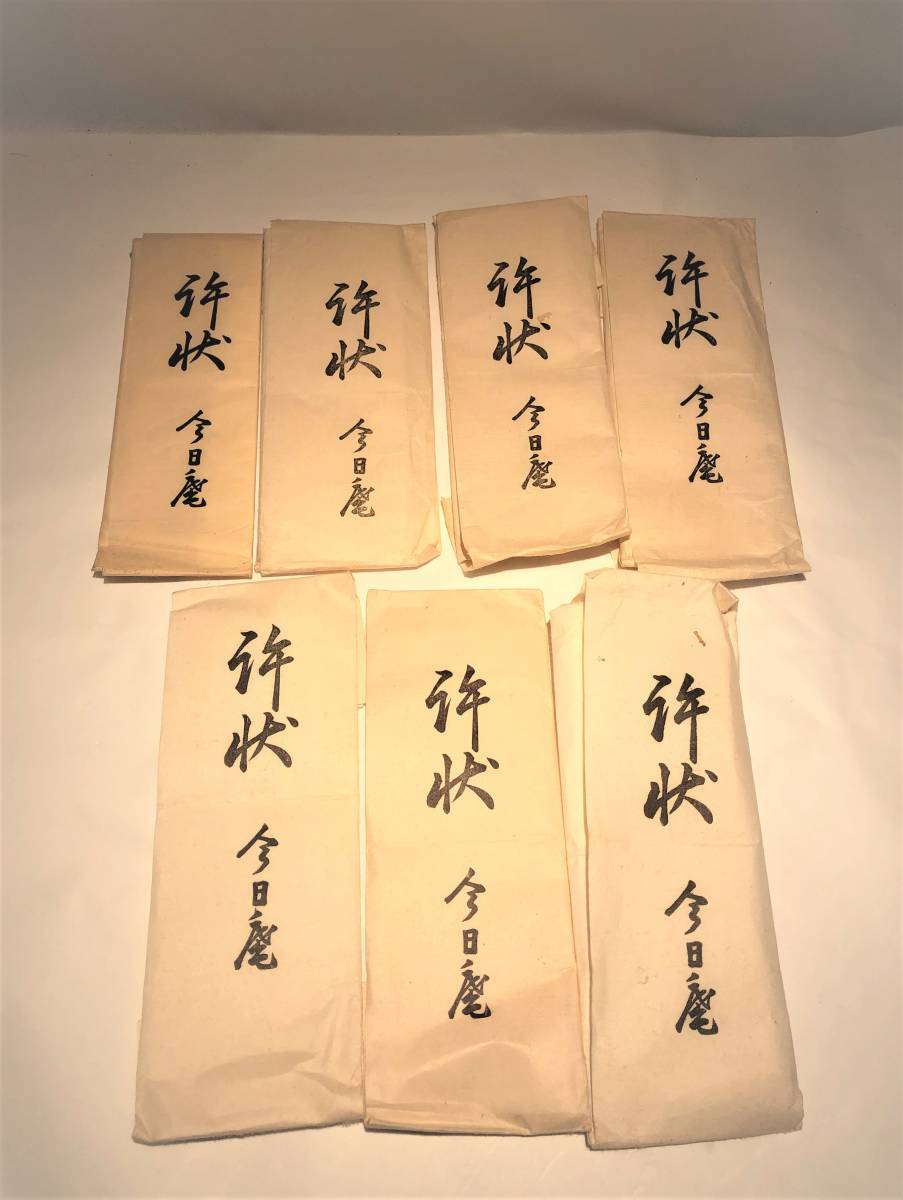 許状
今日庵
許状
今日庵
許状
今日庵
許状
今日庵
許状
今日庵
許状
今日庵
許状
今日庵